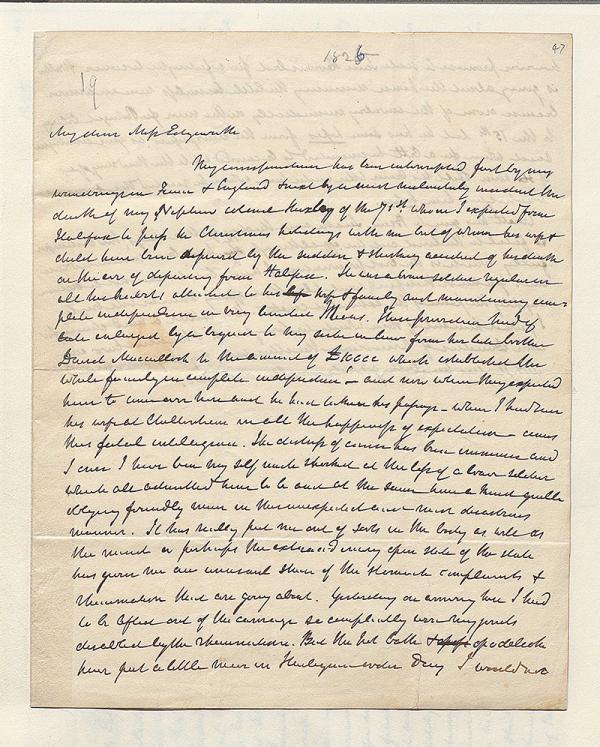 47
1826
19
My dear Miss Edgeworth
My correspondence has been interrupted first by my
wanderings in France & England & next by a most melancholy incident the
death of my Nephew Colonel Huxley of the 71st whom I expected from
Halifax to pass the Christmas holidays with me but of whom his wife &
child have been deprived by the sudden & shocking accident of his death
on the eve of departing from Halifax. He was a brave soldier regular in
all his habits attached to his wife & family and maintaining com-
plete independence on very limited Means. These providence had of
late enlarged by a bequest to my sister in law from her late brother
David Macculloch to the amount of £10000 which established the
whole family in complete independence – and now when they expected
him to come over here and he had taken his passage – when I had seen
his wife at Cheltenham in all the happiness of expectation – comes
this fatal intelligence. The distress of course has been immense and
I own I have been myself much shocked at the loss of a brave soldier
whom all admitted him to be and at the same time a kind gentle
obliging friendly man in this unexpected and most disastrous
manner. It has really put me out of sorts in the body as well as
the mind or perhaps the extraordinary open state of the
has given me an unusual share of the stomach complaints &
rheumatism that are going about. Yesterday on arriving here I had
to be lifted out of the carriage so completely were my joints
disabled by the rheumatism. But the hot bath & opodeldoc
have put a little more in Harlequin order Dear I would not